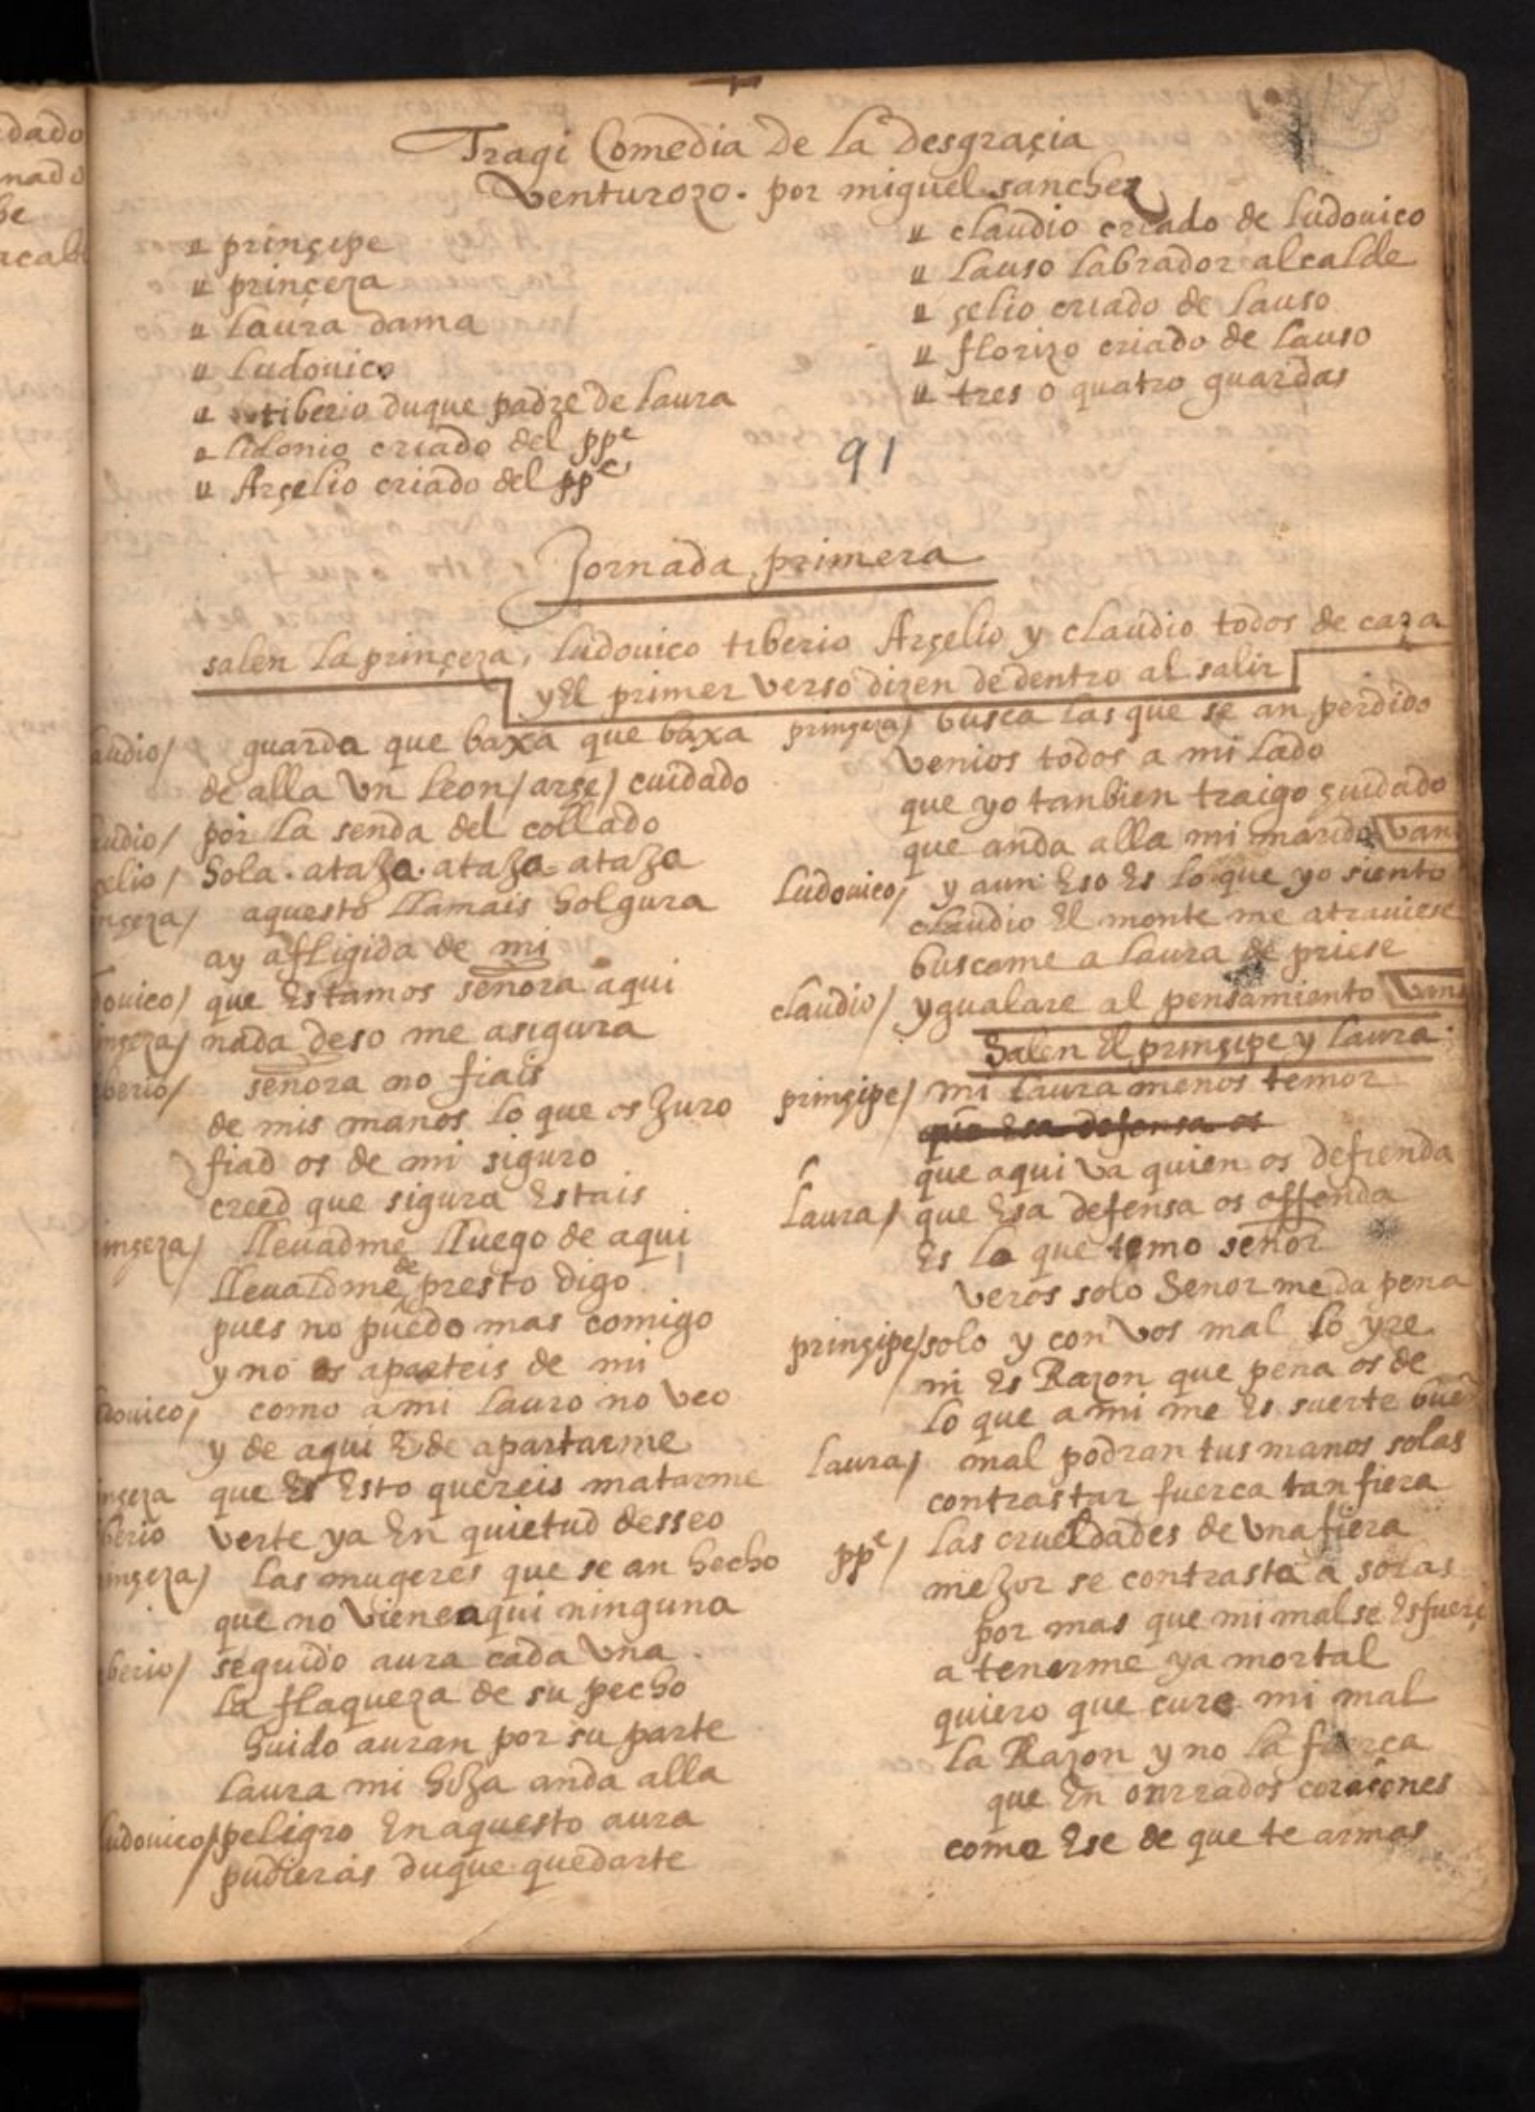 Tragi Comedia de la desgraçia
venturozo. por miguel sanchez
prinçipe
prinçeza
laura dama
ludouico
tiberio duque padre de laura
lidonio criado del ppe
Arçelio criado del ppe
claudio criado de ludouico
lauso labrador alcalde
çelio criado de lauso
florizo criado de lauso
tres o quatro guardas
91
Jornada primera
salen la prinçeza, ludouico tiberio Arçelio y claudio todos de caza
y El primer verso dizen de dentro al salir
audio/ guarda que baxa que baxa
de alla vn leon / arçe / cuidado
audio/ por la senda del collado
çelio/ hola. ataja. ataja ataja
inçeza/ aquesto llamais holgura
ay afligida de mi
douico/ que Estamos señora aqui
inçeza/ nada deso me asigura
berio/ señora no fiais
de mis manos lo que os juro
fiad os de mi siguro
creed que sigura Estais
inçeza/ lleuadme lluego de aqui
lleuadme de presto digo
pues no puedo mas comigo
y no os aparteis de mi
douico/ como a mi lauro no veo
y de aqui E de apartarme
inçeza que Es Esto quereis matarme
berio verte ya En quietud desseo
inçeza/ las mugeres que se an hecho
que no viene aqui ninguna
berio/ seguido aura cada vna
la flaqueza de su pecho
huido auran por su parte
laura mi hija anda alla
udouico/ peligro En aquesto aura
pudieras duque quedarte
prinçeza/ busca las que se an perdido
venios todos a mi lado
que yo tanbien traigo çuidado
que anda alla mi marido van
ludouico/ y aun Eso Es lo que yo siento
claudio El monte me atrauiese
buscame a laura de priese
claudio/ ygualare al pensamiento vans
Salen El prinçipe y laura
prinçipe/ mi laura menos temor
que Esa defensa os
que aqui va quien os defienda
laura/ que Esa defensa os offenda
Es lo que temo señor
veros solo Senor me da pena
prinçipe/ solo y con vos mal lo yre
ni Es Razon que pena os de
lo que a mi me Es suerte buen
laura/ mal podran tus manos solas
contrastar fuerca tan fiera
ppe/ las crueldades de vna fiera
mejor se contrasta a solas
por mas que mi mal se Esfuerç
a tenerme ya mortal
quiero que cure mi mal
la Razon y no la fuerca
que En onrrados coraçones
come Ese de que te armas